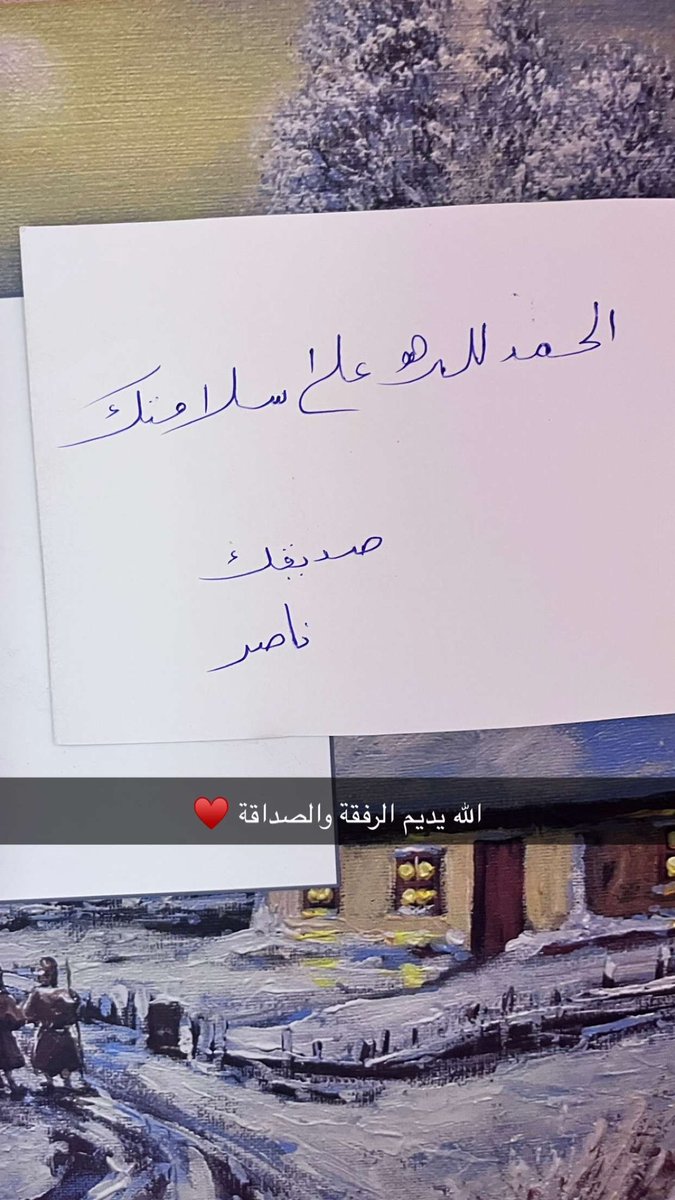 الحمد لله على سلامتك
صديقك
ناصر
الله يديم الرفقة والصداقة ♥️